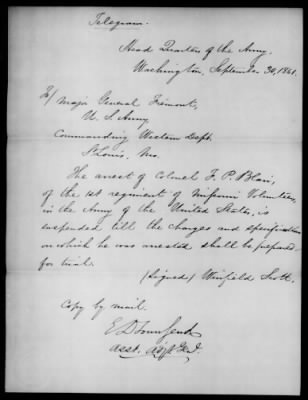 Telegram.
Head Quarters of the Army.
Washington, September 30, 1861.
To/ Major General Fremont,
U. S. Army
Commanding Western Dept.
St Louis, Mo.
The arrest of Colonel F. P. Blair,
of the 1st regiment of Missouri Volunteers,
in the Army of the United States, is
suspended till the charges and specifications
on which he was arrested shall be prepared
for trial.
(Signed) Winfield Scott.
Copy by mail.
E D Townsend
Asst. Adjt Genl.